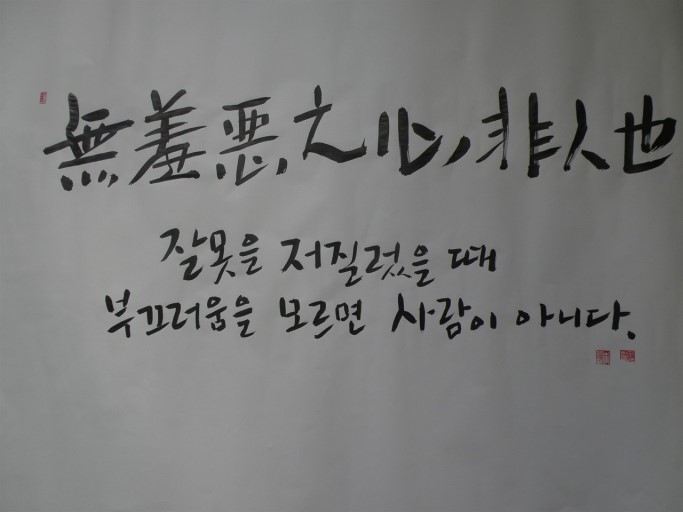 無羞惡之心, 非人也
잘못을 저질렀을 때
부끄러움을 모르면 사람이 아니다.